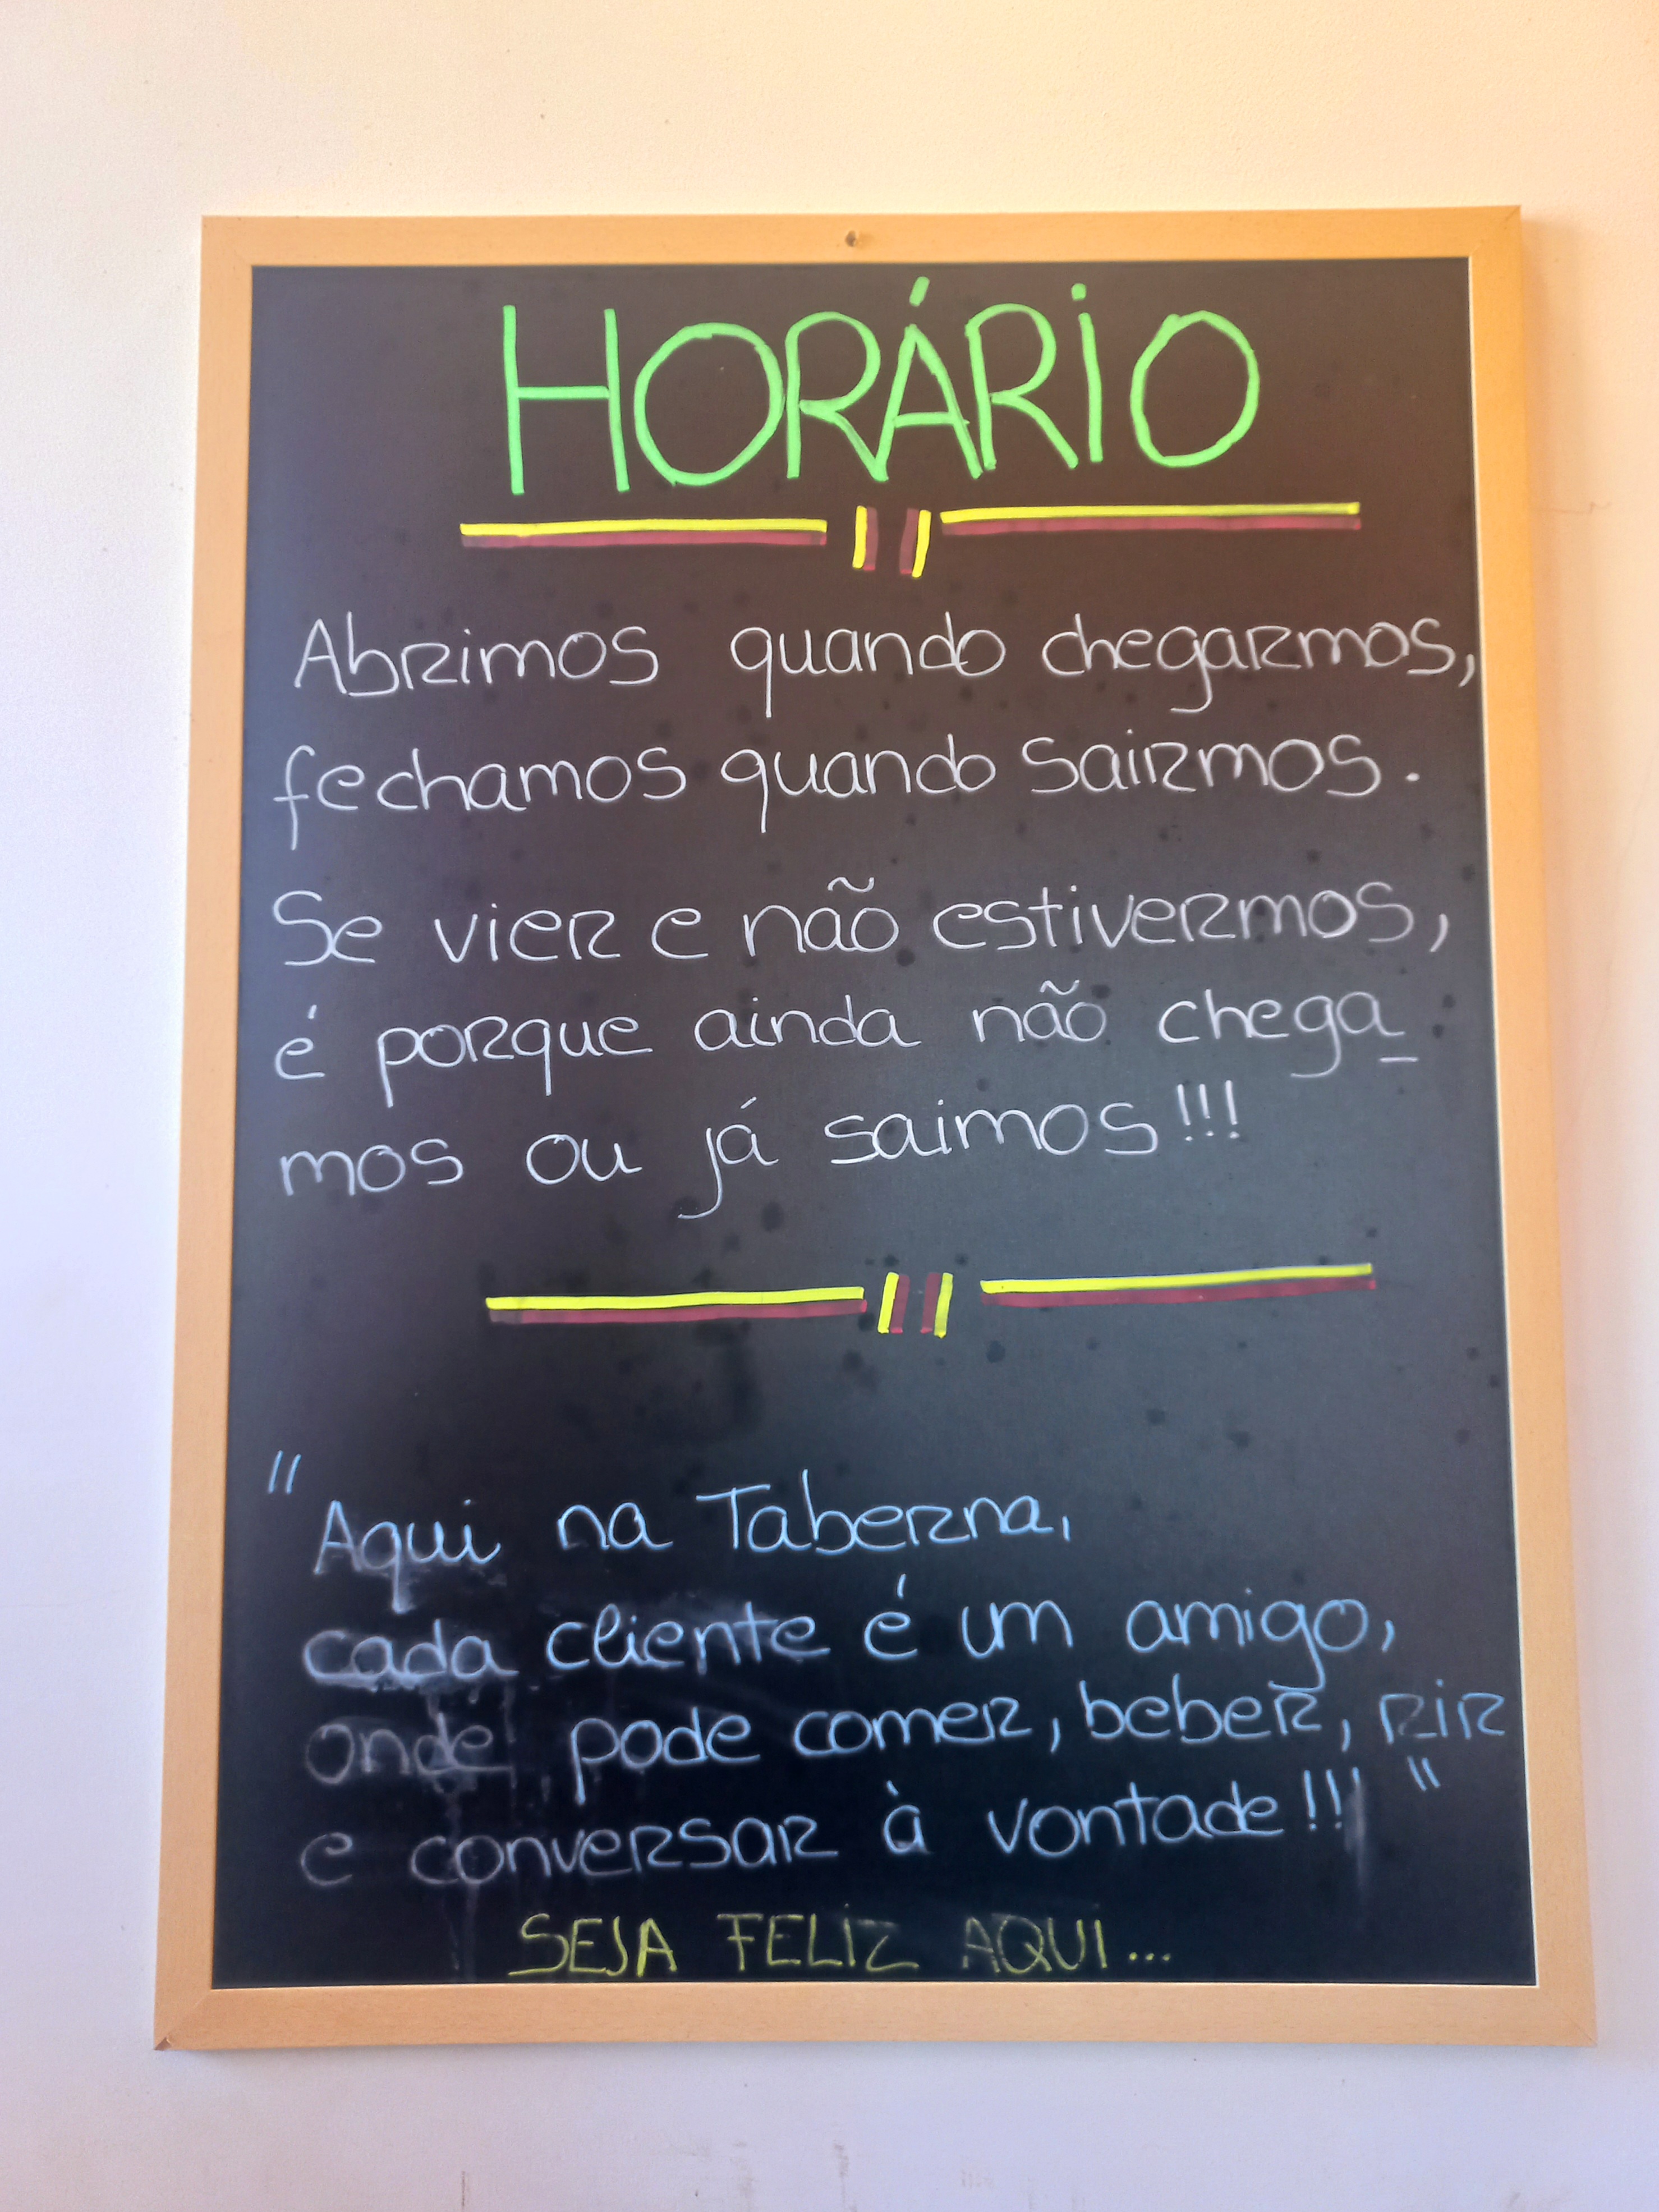 HORÁRIO
Abrimos quando chegarmos,
fechamos quando sairmos.
Se vier e não estivermos,
é porque ainda não chega_
mos ou já saimos!!!
"Aqui na Taberna,
cada cliente é um amigo,
onde pode comer, beber, rir
e conversar à vontade!!!"
SEJA FELIZ AQUI...